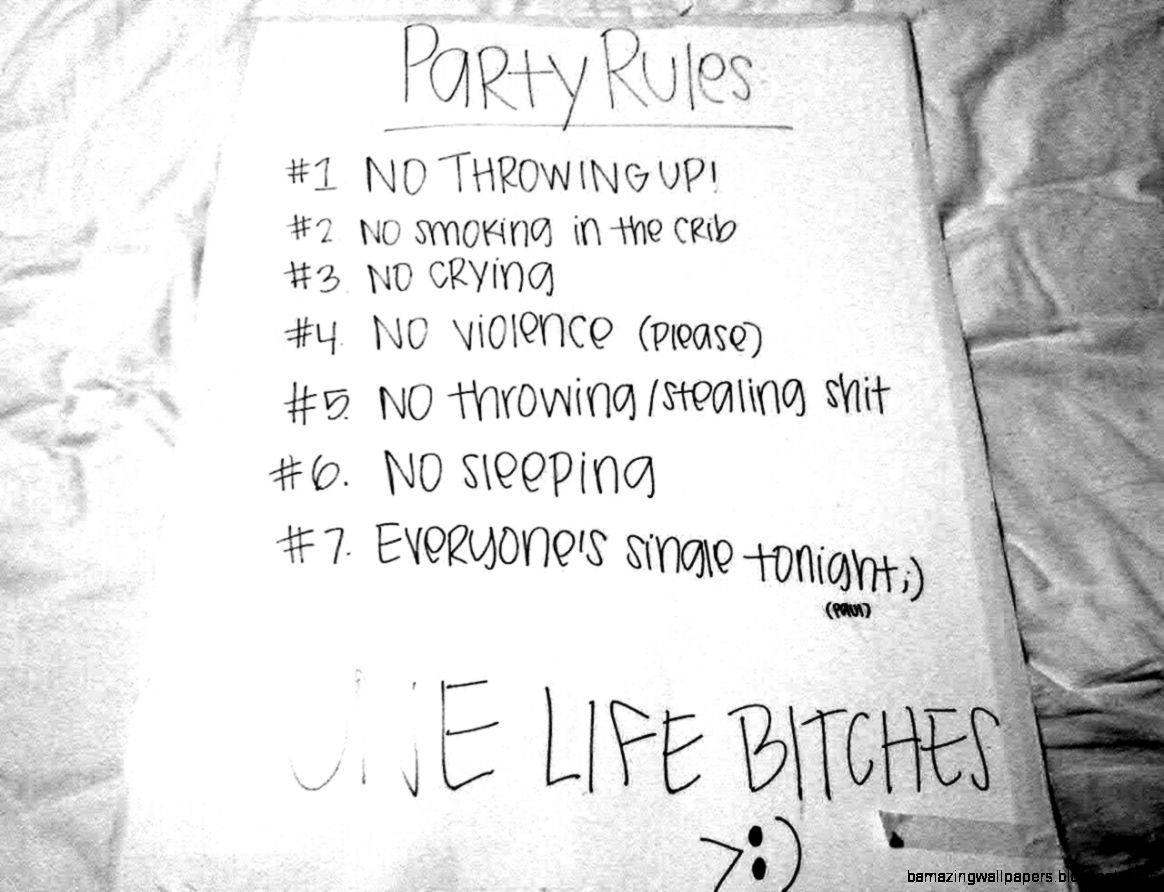 Party Rules
#1 NO THROWING UP!
#2 NO smoking in the crib
#3. NO CRYing
#4. NO violence (please)
#5. NO throwing/stealing shit
#6. NO sleeping
#7. Everyone's single tonight ;)
(PAUI)
ONE LIFE BITCHES
>:)
bamazingwallpapers.bl